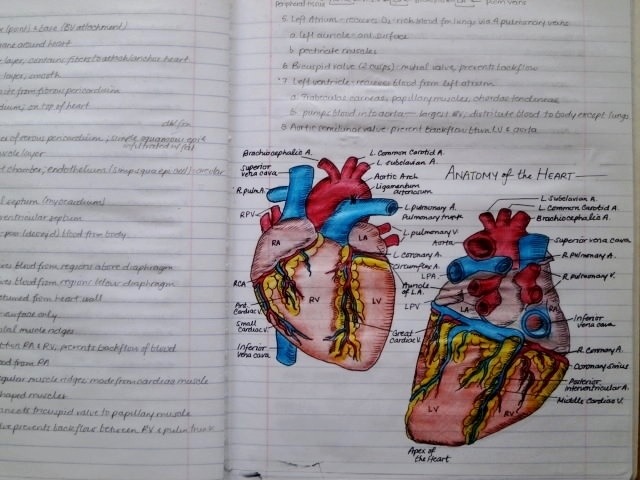 (point) & base (BV attachment)
around heart
layer, contains fibers to attach/anchor heart
layer, smooth
from fibrous pericardium
on top of heart
of serous pericardium, simple squamous epi
infiltrated w/ fat
layer
chamber, endothelium (simp squa epi
septum (myocardium)
ventricular septum
blood from body
blood from regions above diaphragm
blood from regions below diaphragm
returned from heart wall
surface only
muscle ridges
RV, prevents backflow of blood
from RA
muscle ridges, made from cardiac muscle
shaped muscles
tricuspid valve to papillary muscle
prevents backflow between RV & pulm trunk
5. Left Atrium - receives O₂-rich blood fm lungs via 4 pulmonary veins
a. left auricle - ant. surface
b. pectinate muscles
6. Bicuspid valve (2 cusps) - mitral valve, prevents backflow
7. Left ventricle - receives blood from left atrium
a. Trabeculae carneae, papillary muscles, chordae tendineae
b. pumps blood into aorta - largest BV, distribute blood to body except lungs
8. Aortic semilunar valve prevent backflow btwn LV & aorta
ANATOMY of the HEART
Brachiocephalic A.
Superior
vena cava
R. pulm A.
RPV
RA
RCA
Ant.
Cardiac V.
Small
Cardiac V.
Inferior
vena cava
RV
LV
LA
L. Common Carotid A.
L. subclavian A.
Aortic Arch
Ligamentum
arteriosum
L. pulmonary A.
Pulmonary trunk
L. pulmonary V.
L. Coronary A.
Circumflex A.
Great
Cardiac V.
L. Subclavian A.
L. Common Carotid A.
Brachiocephalic A.
Aorta
Superior vena cava
R. Pulmonary A.
LPA
R. pulmonary V.
Auricle
of L.A.
LPV
LA
RA
Inferior
vena cava
R. Coronary A.
Coronary sinus
Posterior
interventricular A.
Middle Cardiac V.
LV
RV
Apex of
the Heart